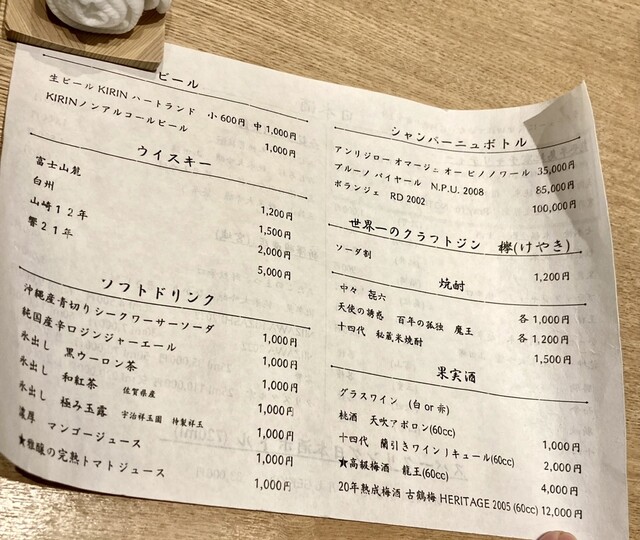 ビール
生ビール KIRIN ハートランド 小 600円 中 1,000円
KIRINノンアルコールビール 1,000円
ウイスキー
富士山麓 1,200円
白州 1,500円
山崎12年 2,000円
響21年 5,000円
ソフトドリンク
沖縄産青切りシークワーサーソーダ 1,000円
純国産辛口ジンジャーエール 1,000円
氷出し 黒ウーロン茶 1,000円
氷出し 和紅茶 佐賀県産 1,000円
氷出し 極み玉露 宇治祥玉園 特製祥玉 1,000円
濃厚 マンゴージュース 1,000円
★雅醸の完熟トマトジュース 1,000円
シャンパーニュボトル
アンリジロー オマージュ オー ピノノワール 35,000円
ブルーノ パイヤール N.P.U. 2008 85,000円
ボランジェ RD 2002 100,000円
世界一のクラフトジン 欅(けやき)
ソーダ割 1,200円
焼酎
中々 㐂六 各 1,000円
天使の誘惑 百年の孤独 魔王 各 1,200円
十四代 秘蔵米焼酎 1,500円
果実酒
グラスワイン (白 or 赤) 1,000円
桃酒 天吹アポロン(60cc) 2,000円
十四代 蘭引きワインリキュール(60cc) 4,000円
★高級梅酒 龍王(60cc)
20年熟成梅酒 古鶴梅 HERITAGE 2005 (60cc) 12,000円